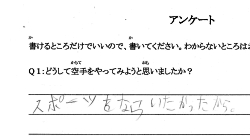 アンケート
書けるところだけでいいので、書いてください。わからないところは
Q1：どうして空手をやってみようと思いましたか？
スポーツをならいたかったから。